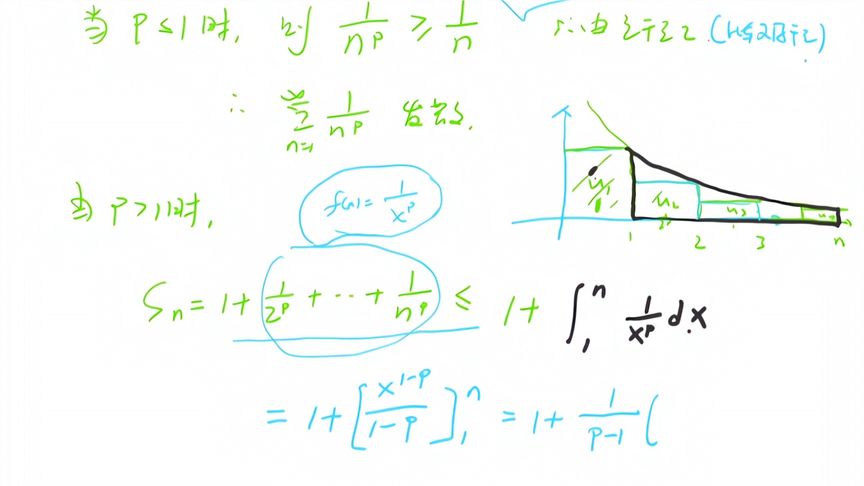 当 P ≤ 1 时, 则 1/n^p ≥ 1/n
∴ ∑_{n=1}^{∞} 1/n^p 发散.
当 P > 1 时, f(x) = 1/x^p
u_1 u_2 u_3
1 2 3 n
S_n = 1 + 1/2^p + ··· + 1/n^p ≤ 1 + ∫_1^n 1/x^p dx
= 1 + [x^{1-p}/(1-p)]_1^n = 1 + 1/(p-1) (